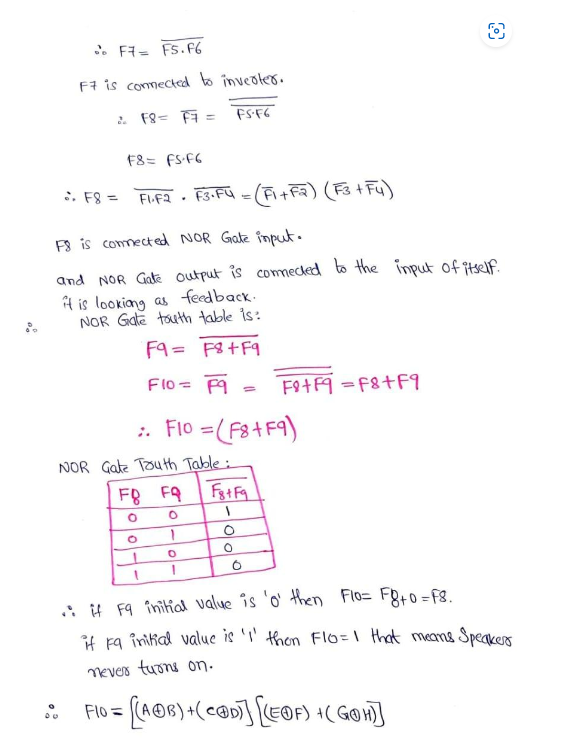 ∴ F7 = \overline{F5.F6}
F7 is connected to inverter.
∴ F8 = \overline{F7} = \overline{\overline{F5.F6}}
F8 = F5.F6
∴ F8 = \overline{F1.F2} . \overline{F3.F4} = (\overline{F1} + \overline{F2}) (\overline{F3} + \overline{F4})
F8 is connected NOR Gate input.
and NOR Gate output is connected to the input of itself.
it is looking as feedback.
∴ NOR Gate truth table is:
F9 = \overline{F8+F9}
F10 = \overline{F9} = \overline{\overline{F8+F9}} = F8+F9
∴ F10 = (F8+F9)
NOR Gate Truth Table:
F8 F9 \overline{F8+F9}
0 0 1
0 1 0
1 0 0
1 1 0
∴ if F9 initial value is '0' then F10 = F8+0 = F8.
if F9 initial value is '1' then F10 = 1 that means Speaker
never turns on.
∴ F10 = [(A⊕B)+(C⊕D)] [(E⊕F)+(G⊕H)]